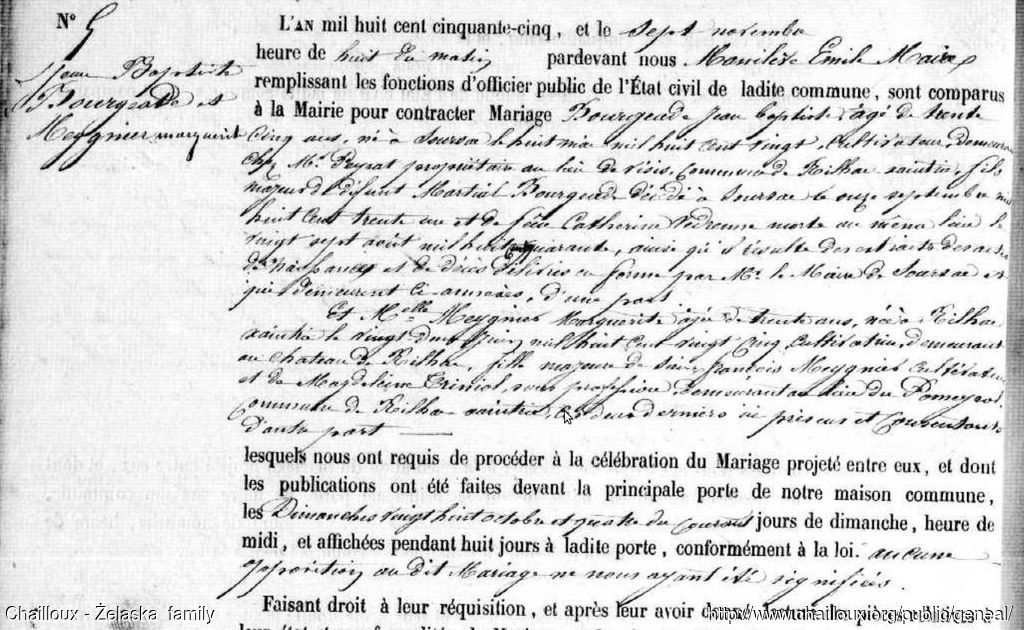 N° 5
Jean Baptiste
Bourgeade et
Meygnier marguerite
L'AN mil huit cent cinquante-cinq, et le sept novembre
heure de huit du matin pardevant nous Emile Maire
remplissant les fonctions d'officier public de l'État civil de ladite commune, sont comparus
à la Mairie pour contracter Mariage Bourgeade Jean baptiste âgé de trente
cinq ans, né à Soursac le huit mai mil huit cent vingt, Cultivateur, demeurant
chez Mr. Peyrat propriétaire au lieu de commune de Rilhac xaintrie, fils
majeur de défunt Martial Bourgeade décédé à Soursac le onze septembre mil
huit cent trente un et de feue Catherine Vedrenne morte au même lieu le
vingt sept août mil huit quarante, ainsi qu'il résulte des extraits des actes
de naissances et de décès délivrés en forme par Mr. le Maire de Soursac et
qui demeurent ci annexés, d'une part.
Et Melle Meygnier Marguerite âgée de trente ans, née à Rilhac
xaintrie le vingt deux juin mil huit cent vingt cinq, cultivatrice, demeurant
au Chateau de Rilhac, fille majeure de sieur françois Meygnier cultivateur
et de Magdeleine sans profession demeurant au lieu du Pomeyrol
commune de Rilhac xaintrie, les deux derniers ici présens et consentants
d'autre part
lesquels nous ont requis de procéder à la célébration du Mariage projeté entre eux, et dont
les publications ont été faites devant la principale porte de notre maison commune,
les Dimanches vingt huit octobre et quatre du courant jours de dimanche, heure de
midi, et affichées pendant huit jours à ladite porte, conformément à la loi. aucune
opposition au dit Mariage ne nous ayant été signifiée.
Faisant droit à leur réquisition, et après leur avoir
Chailloux - Żelaska family